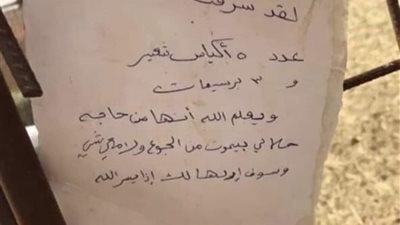 لقد سرقت
عدد ٥ أكياس شعير
و ٣ برسيمات
ويعلم الله أنها من حاجه
حلالي بيموت من الجوع ولا معي شي
وسوف اردها لك إذا يسر الله